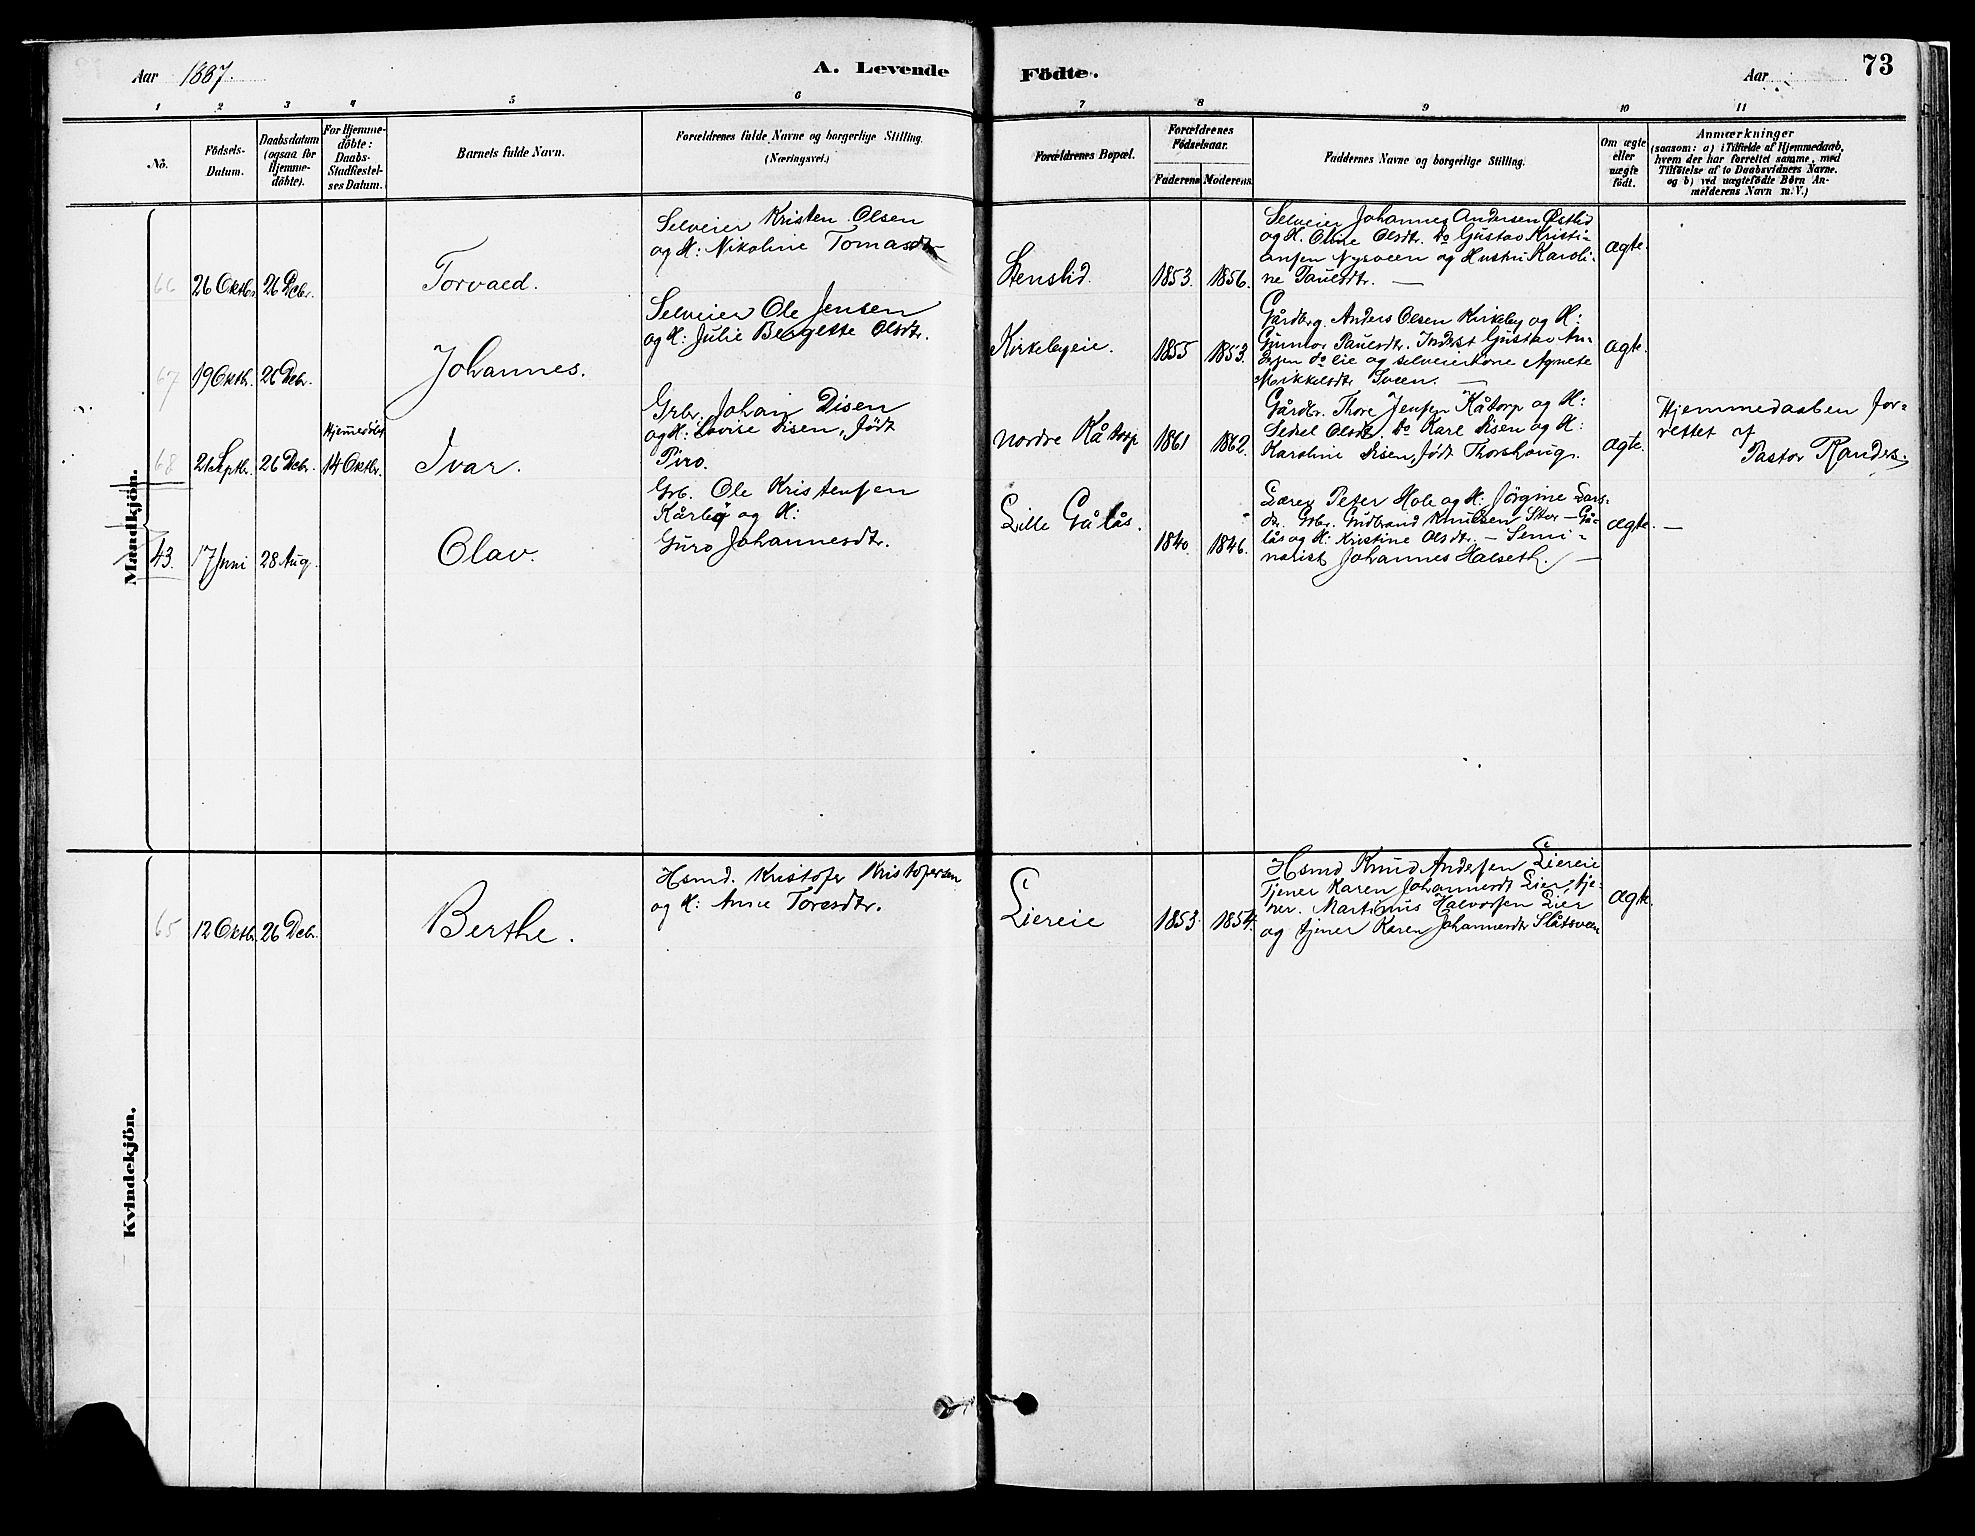 Aar 1887.
A. Levende
Födte.
Aar
73
1 2 3 4 5 6 7 8 9 10 11
No.
Födsels-
Datum.
Daabsdatum
(ogsaa for
Hjemme-
döbte).
For Hjemme-
döbte:
Daabs-
Stadfæstel-
ses Datum.
Barnets fulde Navn.
Forældrenes fulde Navne og borgerlige Stilling.
(Næringsvei.)
Forældrenes Bopæl.
Forældrenes
Födselsaar.
Faderens Moderens.
Faddernes Navne og borgerlige Stilling.
Om ægte
eller
uægte
födt.
Anmærkninger
(saasom: a) i Tilfælde af Hjemmedaab,
hvem der har forrettet samme, med
Tilföielse af to Daabsvidners Navne.
og b) ved uægtefödte Börn An-
melderens Navn m. V.)
Mandkjön.
66
26 Oktbr.
26 Debr.
Torvaed.
Selveier Kristen Olsen
og H: Nikoline Tomasdtr
Stenslid.
1853.
1856.
Selveier Johannes Andersen Østlid
og H. Oline Olsdtr. Do Gustav Kristi-
ansen Nysveen og Hustru Karoli-
ne Paulsdtr. —
ægte.
67
19 Oktbr.
26 Debr.
Johannes.
Selveier Ole Jensen
og H: Julie Bergette Olsdtr.
Kirkebyeie.
1855
1853.
Gårdbrg. Anders Olsen Kirkeby og H:
Gunnor Paulsdtr. Inderst Gustav An-
dersen do eie og selveierkone Agnete
Mikkelsdtr Sveen. —
ægte.
68
21 Septbr.
26 Debr.
Hjemmedöbt
14 Oktbr.
Ivar.
Grbr. Johan Disen
og H: Lovise Disen, födt
Piro.
nordre Kåtorp
1861
1862.
Gårdbr. Thore Jensen Kåtorp og H:
Sedsel Olsdtr, Do Karl Disen og H:
Karoline Disen, födt Thorshaug.
ægte.
Hjemmedaaben for-
rettet af
Pastor Randers.
43.
17 Juni
28 Aug.
Olav.
Grb. Ole Kristensen
Kårbø og H:
Guro Johannesdtr.
Lille Gålås.
1840.
1846.
Lærer Peter Hole og H: Jørgine Lars-
dtr. Grbr. Gudbrand Knudsen Stor-Gå-
lås og H: Kristine Olsdtr. — Semi-
narist Johannes Halseth. —
ægte. —
Kvindekjön.
65
12 Oktbr.
26 Debr.
Berthe.
Hsmd. Kristofer Kristofersen
og H: Anne Toresdtr.
Liereie
1853.
1854.
Hsmd Knud Andersen Liereie
Tjener Karen Johannesdt Lier, tje-
ner. Martinus Halvorsen Lier
og tjener Karen Johannesdtr Slåtsveen
ægte.